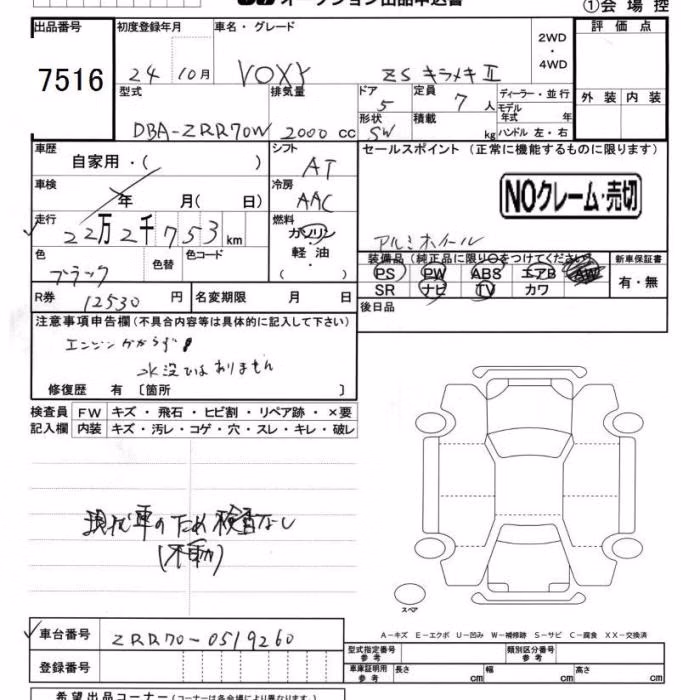 オークション出品申込書
①会場控
出品番号 初度登録年月 車名・グレード 2WD・4WD 評価点
7516 24 10月 VOXY ZS キラメキ II
型式 排気量 ドア 5 定員 7人 ディーラー・並行 外装 内装
DBA-ZRR70W 2000cc 形状 SW 積載 kg モデル年式 年 ハンドル 左・右
車歴 自家用・( ) シフト AT セールスポイント (正常に機能するものに限ります)
車検 年 月( 日) 冷房 AAC NOクレーム・売切
走行 22万2千753km 燃料 ガソリン 軽油・( ) アルミホイール
色 ブラック 色替 色コード 装備品 (純正品に限り○をつけてください) 新車保証書
PS PW ABS エアB AW 有・無
R券 12530円 名変期限 月 日 SR ナビ TV カワ
後日品
注意事項申告欄 (不具合内容等は具体的に記入して下さい)
エンジンかからず
水没ではありません
修復歴 有 〔箇所 〕
検査員 FW キズ・飛石・ヒビ割・リペア跡・×要
記入欄 内装 キズ・汚レ・コゲ・穴・スレ・キレ・破レ
現状車のため検査なし
(不動)
スペア
A-キズ E-エクボ U-凹み W-補修跡 S-サビ C-腐食 XX-交換済
車台番号 ZRR70-0519260 型式指定番号 参考 類別区分番号 参考
登録番号 車庫証明用 参考 長さ cm 幅 cm 高さ cm
希望出品コーナー (コーナー名は各会場により異なります)